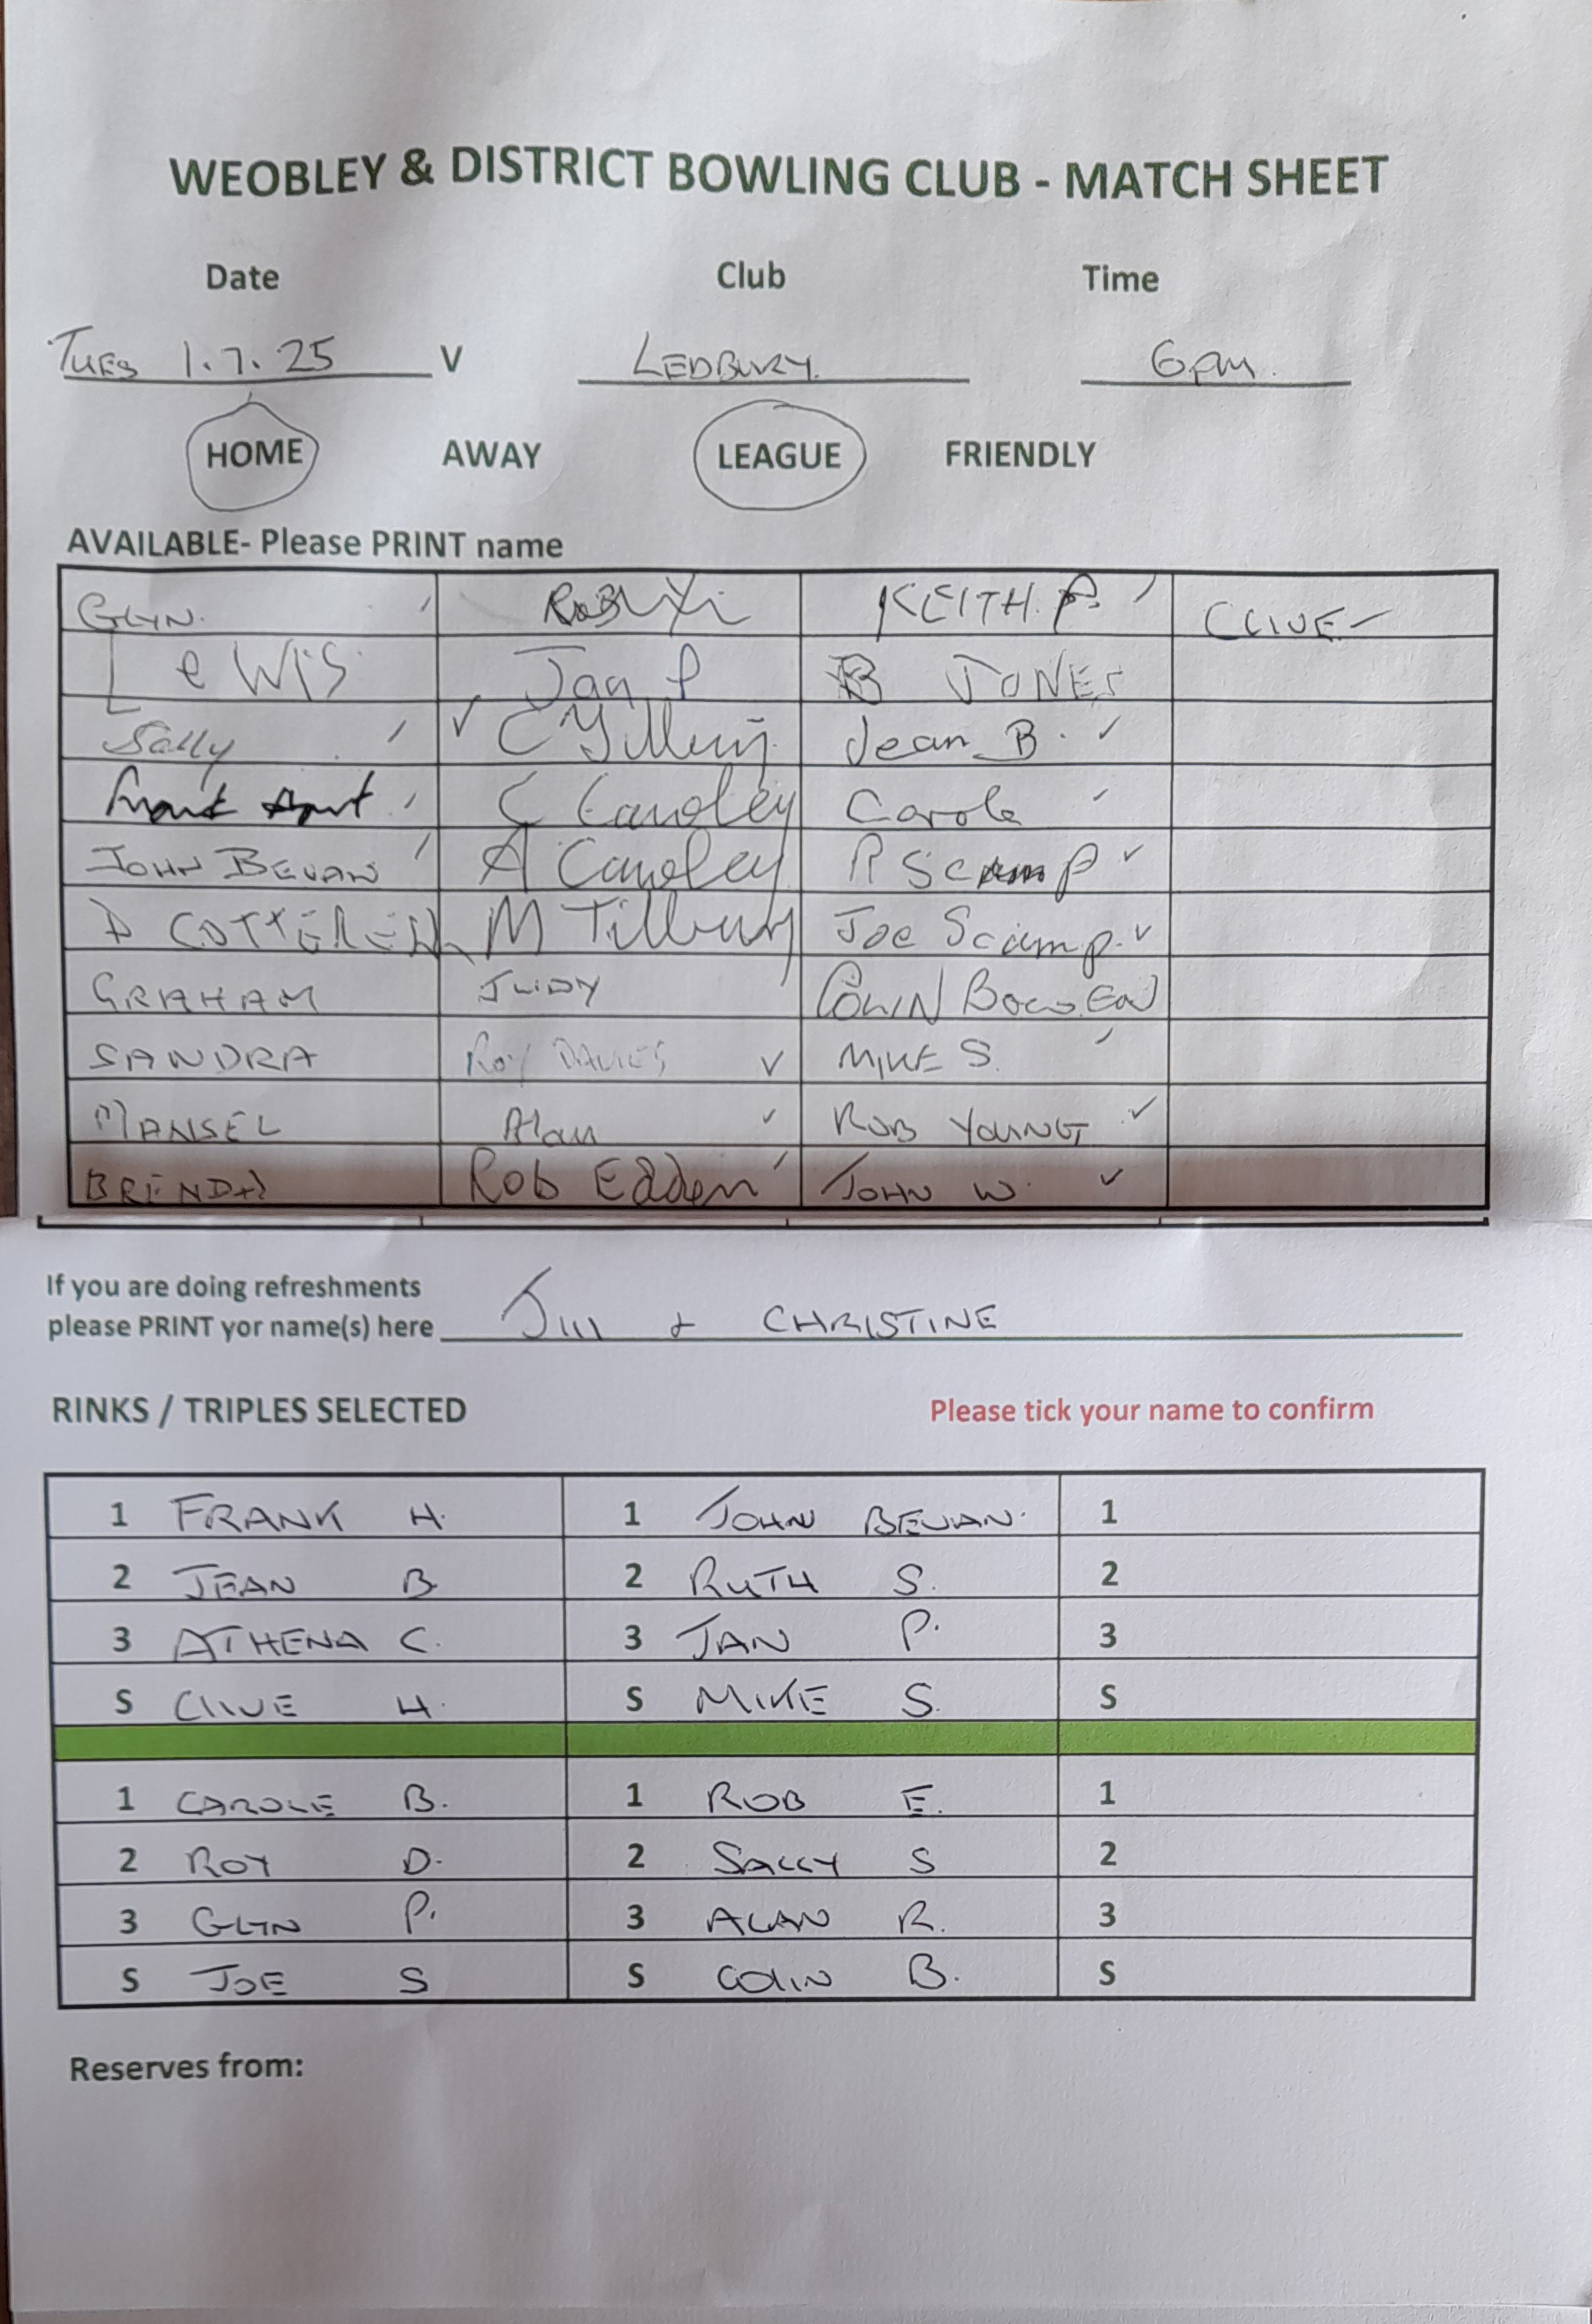 WEOBLEY & DISTRICT BOWLING CLUB - MATCH SHEET
Date Club Time
TUES 1.7.25 V LEDBURY. 6pm.
HOME AWAY LEAGUE FRIENDLY
AVAILABLE- Please PRINT name
GLYN. KEITH. P. CLIVE
LeWIS Jan P B JONES
Sally C Jean B.
C Carole
JOHN BEVAN A P Scamp
D M Tilbury Joe Scamp.
GRAHAM JUDY COLIN BOWEN
SANDRA ROY DAVIES MIKE S.
MANSEL Alan ROB YOUNG
BRENDA Rob Edden JOHN W.
If you are doing refreshments
please PRINT yor name(s) here Jill + CHRISTINE
RINKS / TRIPLES SELECTED Please tick your name to confirm
1 FRANK H. 1 JOHN BEVAN. 1
2 JEAN B 2 RUTH S. 2
3 ATHENA C. 3 JAN P. 3
S CLIVE H. S MIKE S. S
1 CAROLE B. 1 ROB E. 1
2 ROY D. 2 SALLY S 2
3 GLYN P. 3 ALAN R. 3
S JOE S S COLIN B. S
Reserves from: